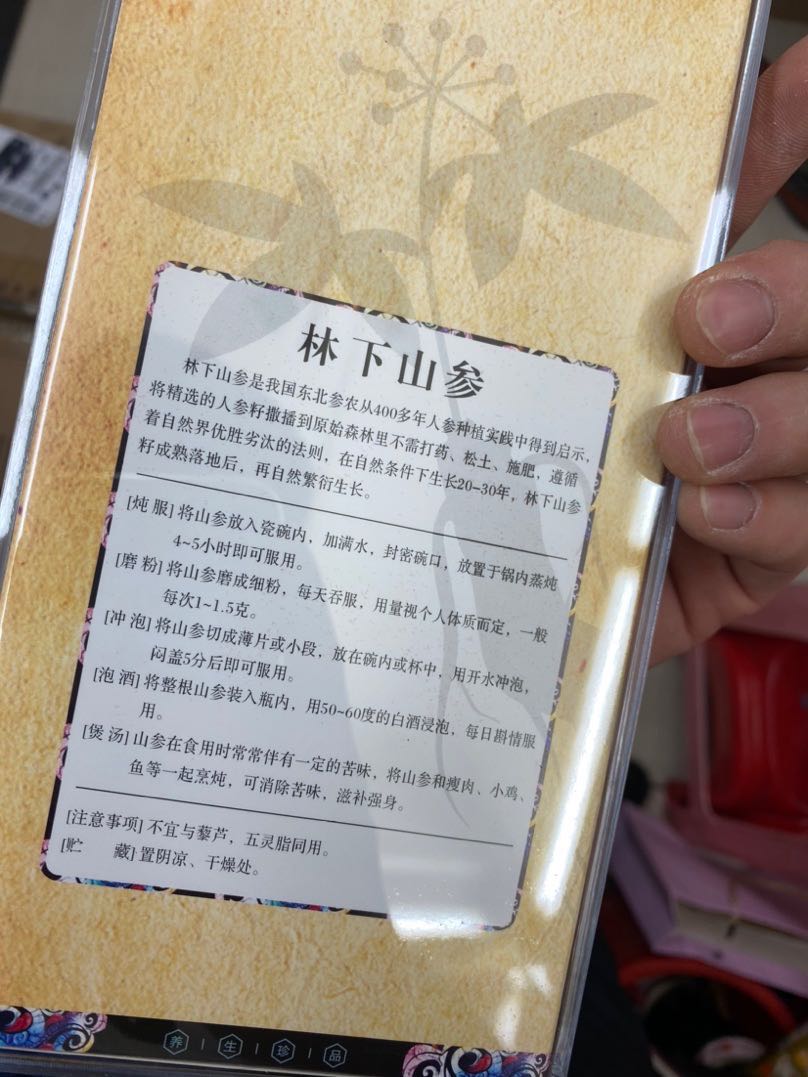 林下山参
林下山参是我国东北参农从400多年人参种植实践中得到启示，
将精选的人参籽撒播到原始森林里不需打药、松土、施肥，遵循
着自然界优胜劣汰的法则，在自然条件下生长20-30年，林下山参
籽成熟落地后，再自然繁衍生长。
[炖 服] 将山参放入瓷碗内，加满水，封密碗口，放置于锅内蒸炖
4~5小时即可服用。
[磨 粉] 将山参磨成细粉，每天吞服，用量视个人体质而定，一般
每次1~1.5克。
[冲 泡] 将山参切成薄片或小段，放在碗内或杯中，用开水冲泡，
闷盖5分后即可服用。
[泡 酒] 将整根山参装入瓶内，用50~60度的白酒浸泡，每日斟情服
用。
[煲 汤] 山参在食用时常常伴有一定的苦味，将山参和瘦肉、小鸡、
鱼等一起烹炖，可消除苦味，滋补强身。
[注意事项] 不宜与藜芦，五灵脂同用。
[贮 藏] 置阴凉、干燥处。
养 | 生 | 珍 | 品